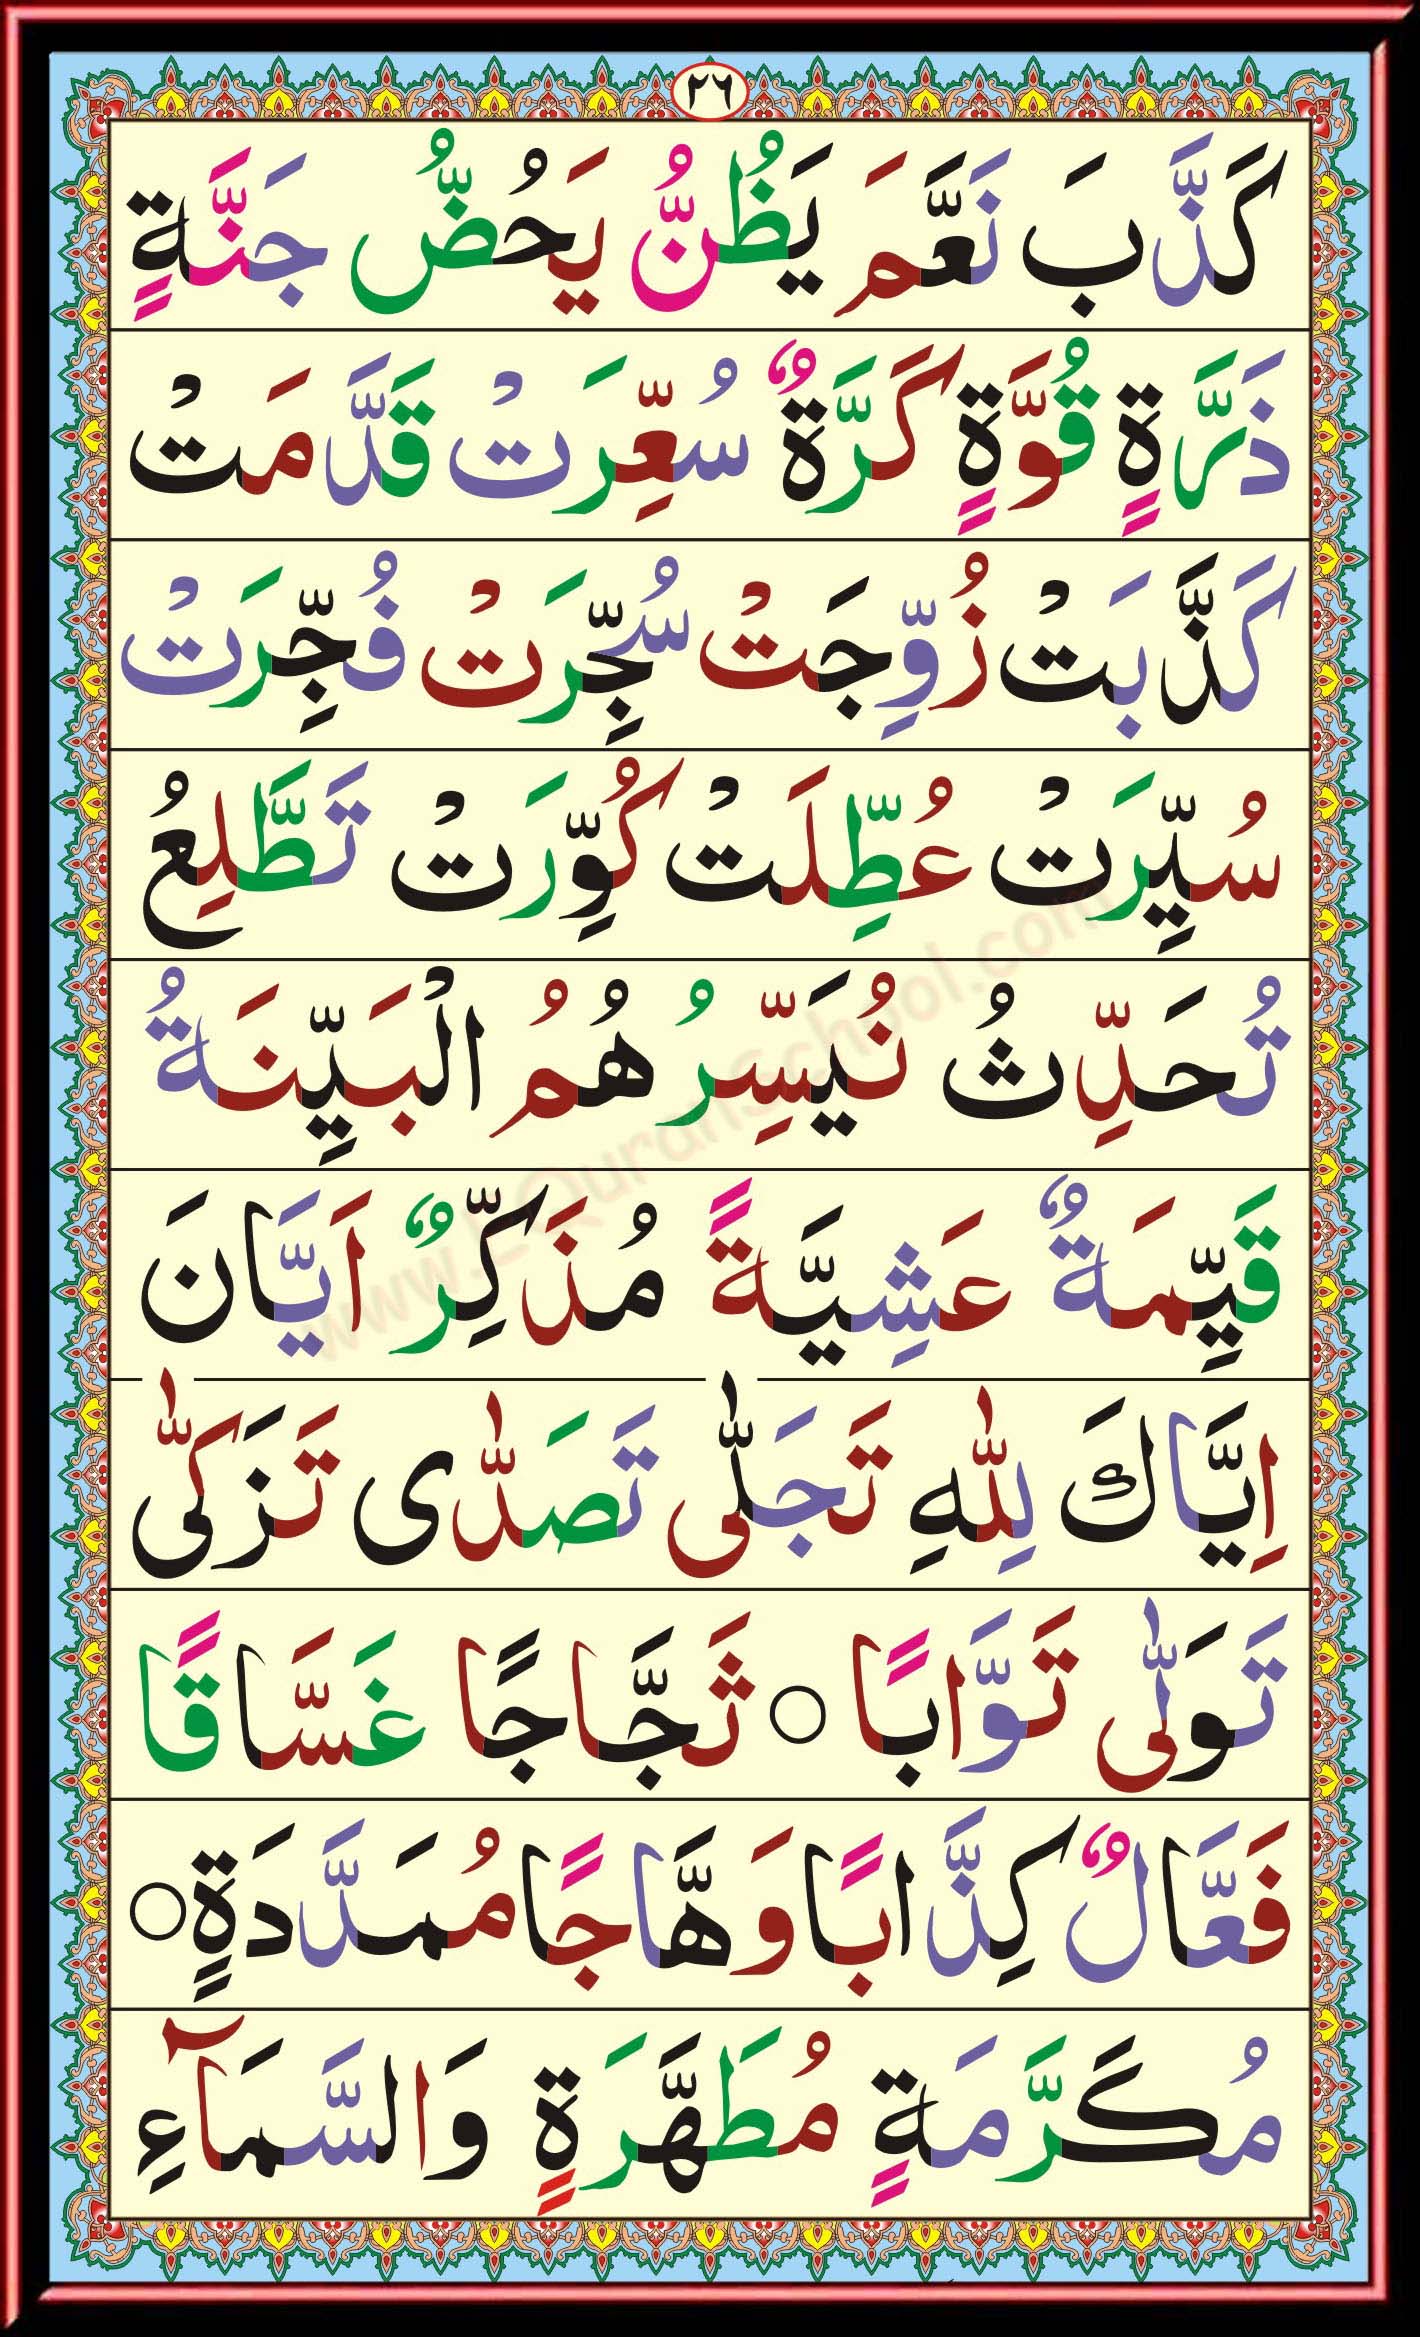 ٢٦
كَذَّبَ نَعَّمَ يَظُنُّ يَحُضُّ جَنَّةٍ
ذَرَّةٍ قُوَّةٍ كَرَّةٌ سُعِّرَتْ قَدَّمَتْ
كَذَّبَتْ زُوِّجَتْ سُجِّرَتْ فُجِّرَتْ
سُيِّرَتْ عُطِّلَتْ كُوِّرَتْ تَطَّلِعُ
تُحَدِّثُ نُيَسِّرُ هُمُ الْبَيِّنَةُ
قَيِّمَةٌ عَشِيَّةً مُذَكِّرٌ اَيَّانَ
اِيَّاكَ لِلّٰهِ تَجَلّٰى تَصَدّٰى تَزَكّٰى
تَوَلّٰى تَوَّابًا ○ ثَجَّاجًا غَسَّاقًا
فَعَّالٌ كِذَّابًا وَهَّاجًا مُمَدَّدَةٍ ○
مُكَرَّمَةٍ مُطَهَّرَةٍ وَالسَّمَآءِ
www.EQuranSchool.com